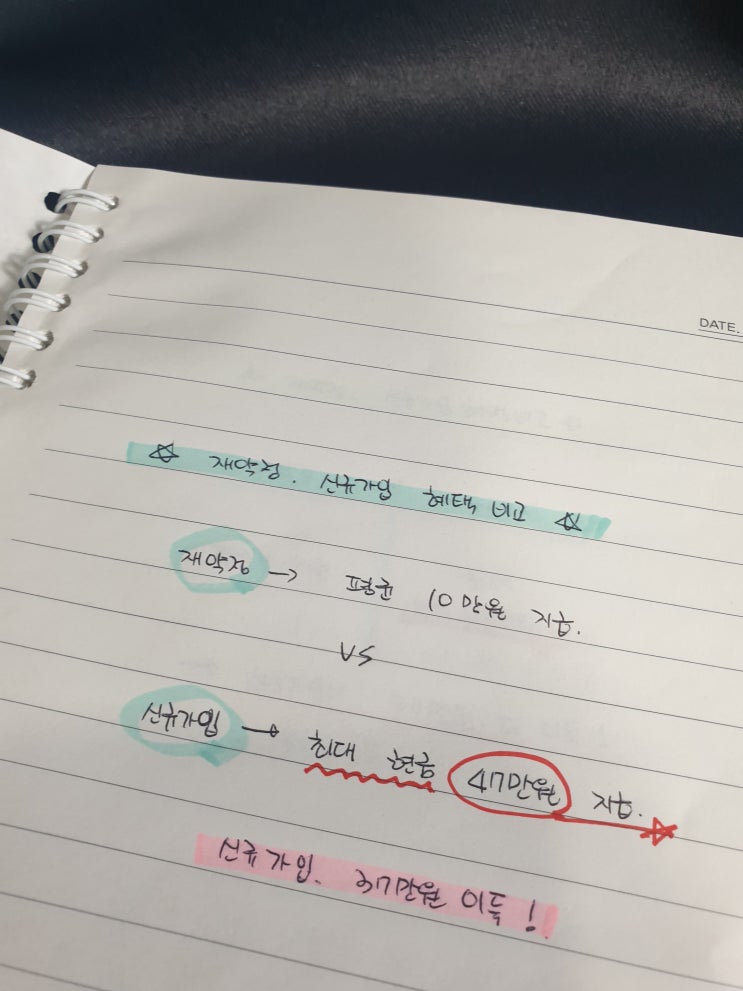 DATE.
☆ 재약정. 신규가입 혜택 비교 ☆
재약정 → 평균 10만원 지급.
VS
신규가입 → 최대 현금 47만원 지급.
신규가입. 37만원 이득!